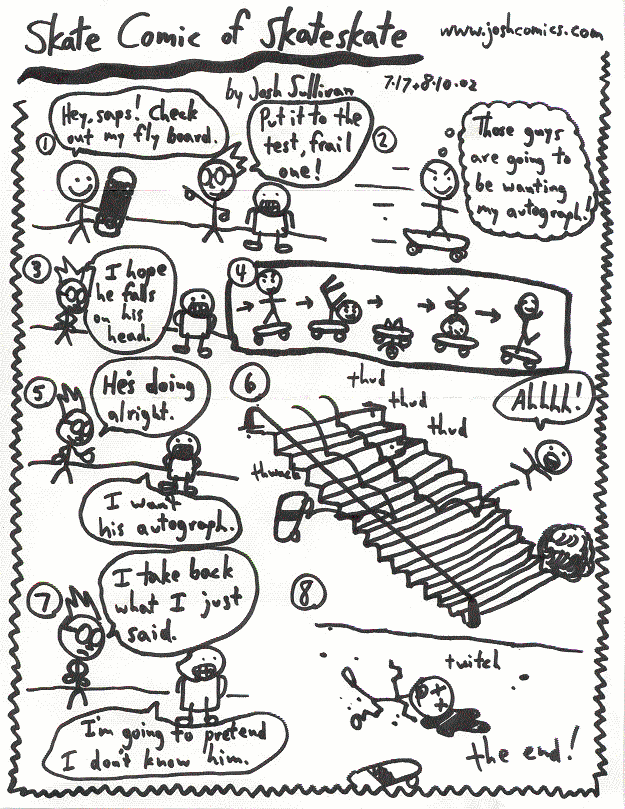 Skate Comic of Skateskate
www.joshcomics.com
by Josh Sullivan
7.17+8.10.02
1
Hey, saps! Check
out my fly board.
Put it to the
test, frail
one!
2
Those guys
are going to
be wanting
my autograph!
3
I hope
he falls
on his
head.
4
5
He's doing
alright.
I want
his autograph.
6
thud
thud
thud
thwack
Ahhhh!
7
I take back
what I just
said.
I'm going to pretend
I don't know him.
8
twitch
the end!